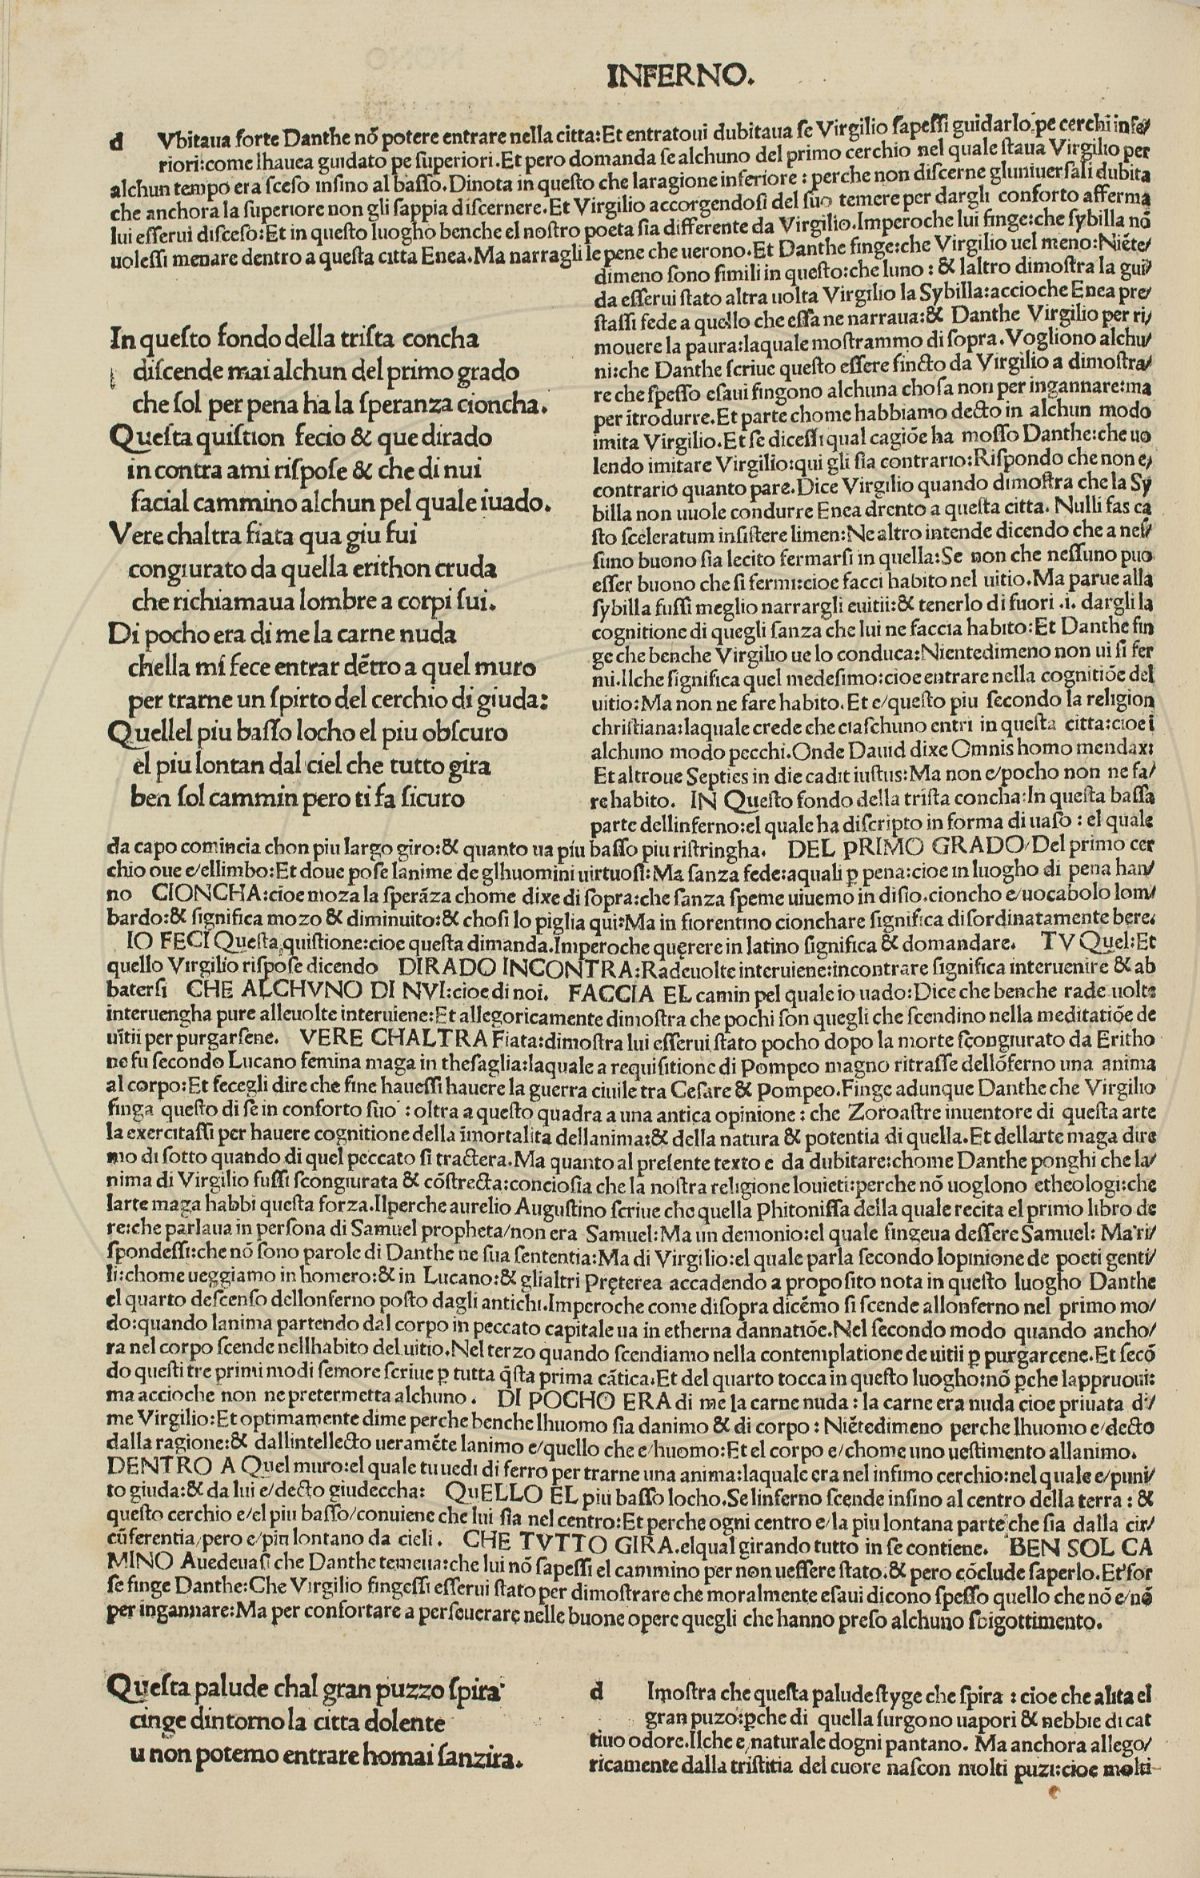 INFERNO.
d Vbitaua forte Danthe nõ potere entrare nella citta:Et entratoui dubitaua se Virgilio sapessi guidarlo pe cerchi infe/
riori:come lhauea guidato pe superiori.Et pero domanda se alchuno del primo cerchio nel quale staua Virgilio per
alchun tempo era sceso insino al basso.Dinota in questo che laragione inferiore : perche non discerne gluniuersali dubita
che anchora la superiore non gli sappia discernere.Et Virgilio accorgendosi del suo temere per dargli conforto afferma
lui esserui disceso:Et in questo luogho benche el nostro poeta sia differente da Virgilio.Imperoche lui finge:che sybilla nõ
uolessi menare dentro a questa citta Enea.Ma narragli le pene che uerono.Et Danthe finge:che Virgilio uel meno:Niẽte/
dimeno sono simili in questo:che luno : & laltro dimostra la gui/
da esserui stato altra uolta Virgilio la Sybilla:accioche Enea pre/
stassi fede a quello che essa ne narraua:& Danthe Virgilio per ri/
mouere la paura:laquale mostrammo di sopra.Vogliono alchu/
ni:che Danthe scriue questo essere fincto da Virgilio a dimostra/
re che spesso esaui fingono alchuna chosa non per ingannare:ma
per ĩtrodurre.Et parte chome habbiamo decto in alchun modo
imita Virgilio.Et se dicessi qual cagiõe ha mosso Danthe:che uo
lendo imitare Virgilio:qui gli sia contrario:Rispondo che non e/
contrario quanto pare.Dice Virgilio quando dimostra che la Sy
billa non uuole condurre Enea drento a questa citta. Nulli fas ca
sto sceleratum insistere limen:Ne altro intende dicendo che a nes/
suno buono sia lecito fermarsi in quella:Se non che nessuno puo
esser buono che si fermi:cioe facci habito nel uitio.Ma parue alla
sybilla fussi meglio narrargli euitii:& tenerlo di fuori .i. dargli la
cognitione di quegli sanza che lui ne faccia habito:Et Danthe fin
ge che benche Virgilio ue lo conduca:Nientedimeno non ui si fer
mi.Ilche significa quel medesimo:cioe entrare nella cognitiõe del
uitio:Ma non ne fare habito.Et e/questo piu secondo la religion
christiana:laquale crede che ciaschuno entri in questa citta:cioe ĩ
alchuno modo pecchi.Onde Dauid dixe Omnis homo mendax:
Et altroue Septies in die cadit iustus:Ma non e/pocho non ne fa/
re habito. IN Questo fondo della trista concha:In questa bassa
parte dellinferno:el quale ha discripto in forma di uaso : el quale
In questo fondo della trista concha
discende mai alchun del primo grado
che sol per pena ha la speranza cioncha.
Questa quistion fecio & que dirado
in contra ami rispose & che di nui
facial cammino alchun pel quale iuado.
Vere chaltra fiata qua giu fui
congiurato da quella erithon cruda
che richiamaua lombre a corpi sui.
Di pocho era di me la carne nuda
chella mi fece entrar dẽtro a quel muro
per trarne un spirto del cerchio di giuda:
Quellel piu basso locho el piu obscuro
el piu lontan dal ciel che tutto gira
ben sol cammin pero ti fa sicuro
da capo comincia chon piu largo giro:& quanto ua piu basso piu ristringha. DEL PRIMO GRADO/Del primo cer
chio oue e/ellimbo:Et doue pose lanime de glhuomini uirtuosi:Ma sanza fede:aquali ꝑ pena:cioe in luogho di pena han/
no CIONCHA:cioe moza la sperãza chome dixe di sopra:che sanza speme uiuemo in disio.cioncho e/uocabolo lom/
bardo:& significa mozo & diminuito:& chosi lo piglia qui:Ma in fiorentino cionchare significa disordinatamente bere.
IO FECI Questa quistione:cioe questa dimanda.Imperoche quęrere in latino significa & domandare. TV Quel:Et
quello Virgilio rispose dicendo DIRADO INCONTRA:Rade uolte interuiene:incontrare significa interuenire & ab
batersi CHE ALCHVNO DI NVI:cioe di noi. FACCIA EL camin pel quale io uado:Dice che benche rade uolte
interuengha pure alleuolte interuiene:Et allegoricamente dimostra che pochi son quegli che scendino nella meditatiõe de
uitii per purgarsene. VERE CHALTRA Fiata:dimostra lui esserui stato pocho dopo la morte sçongiurato da Eritho
ne fu secondo Lucano femina maga in thesaglia:laquale a requisitione di Pompeo magno ritrasse dellõferno una anima
al corpo:Et fecegli dire che fine hauessi hauere la guerra ciuile tra Cesare & Pompeo.Finge adunque Danthe che Virgilio
finga questo di se in conforto suo : oltra a questo quadra a una antica opinione : che Zoroastre inuentore di questa arte
la exercitassi per hauere cognitione della ĩmortalita dellanima:& della natura & potentia di quella.Et dellarte maga dire
mo di sotto quando di quel peccato si tractera.Ma quanto al presente texto e da dubitare:chome Danthe ponghi che la/
nima di Virgilio fussi scongiurata & cõstrecta:conciosia che la nostra religione louieti:perche nõ uoglono etheologi:che
larte maga habbi questa forza.Ilperche aurelio Augustino scriue che quella Phitonissa della quale recita el primo libro de
re:che parlaua in persona di Samuel propheta/non era Samuel:Ma un demonio:el quale fingeua dessere Samuel: Ma ri/
spondessi:che nõ sono parole di Danthe ne sua sententia:Ma di Virgilio:el quale parla secondo lopinione de poeti genti/
li:chome ueggiamo in homero:& in Lucano:& glialtri Pręterea accadendo a proposito nota in questo luogho Danthe
el quarto descenso dellonferno posto dagli antichi.Imperoche come disopra dicẽmo si scende allonferno nel primo mo/
do:quando lanima partendo dal corpo in peccato capitale ua in etherna dannatiõe.Nel secondo modo quando ancho/
ra nel corpo scende nellhabito del uitio.Nel terzo quando scendiamo nella contemplatione de uitii ꝑ purgarcene.Et secõ
do questi tre primi modi semore scriue ꝑ tutta q̃sta prima cãtica.Et del quarto tocca in questo luogho:nõ ꝑche lappruoui:
ma accioche non ne pretermetta alchuno. DI POCHO ERA di me la carne nuda : la carne era nuda cioe priuata di/
me Virgilio:Et optimamente dime perche benche lhuomo sia danimo & di corpo : Niẽtedimeno perche lhuomo e/decto
dalla ragione:& dallintellecto ueramẽte lanimo e/quello che e/huomo:Et el corpo e/chome uno uestimento allanimo.
DENTRO A Quel muro:el quale tu uedi di ferro per trarne una anima:laquale era nel infimo cerchio:nel quale e/puni/
to giuda:& da lui e/decto giudeccha: QuELLO EL piu basso locho.Se linferno scende insino al centro della terra : &
questo cerchio e/el piu basso/conuiene che lui sia nel centro:Et perche ogni centro e/la piu lontana parte che sia dalla cir/
cũferentia/pero e/piu lontano da cieli. CHE TVTTO GIRA.elqual girando tutto in se contiene. BEN SOL CA
MINO Auedeuasi che Danthe temeua:che lui nõ sapessi el cammino per non uessere stato:& pero cõclude saperlo.Et for
se finge Danthe:Che Virgilio fingessi esserui stato per dimostrare che moralmente esaui dicono spesso quello che nõ e/nõ
per ingannare:Ma per confortare a perseuerare nelle buone opere quegli che hanno preso alchuno sbigottimento.
Questa palude chal gran puzzo spira
cinge dintorno la citta dolente
u non potemo entrare homai sanzira.
d Imostra che questa palude styge che spira : cioe che alita el
gran puzo:ꝑche di quella surgono uapori & nebbie di cat
tiuo odore.Ilche e/naturale dogni pantano. Ma anchora allego/
ricamente dalla tristitia del cuore nascon molti puzi:cioe molti